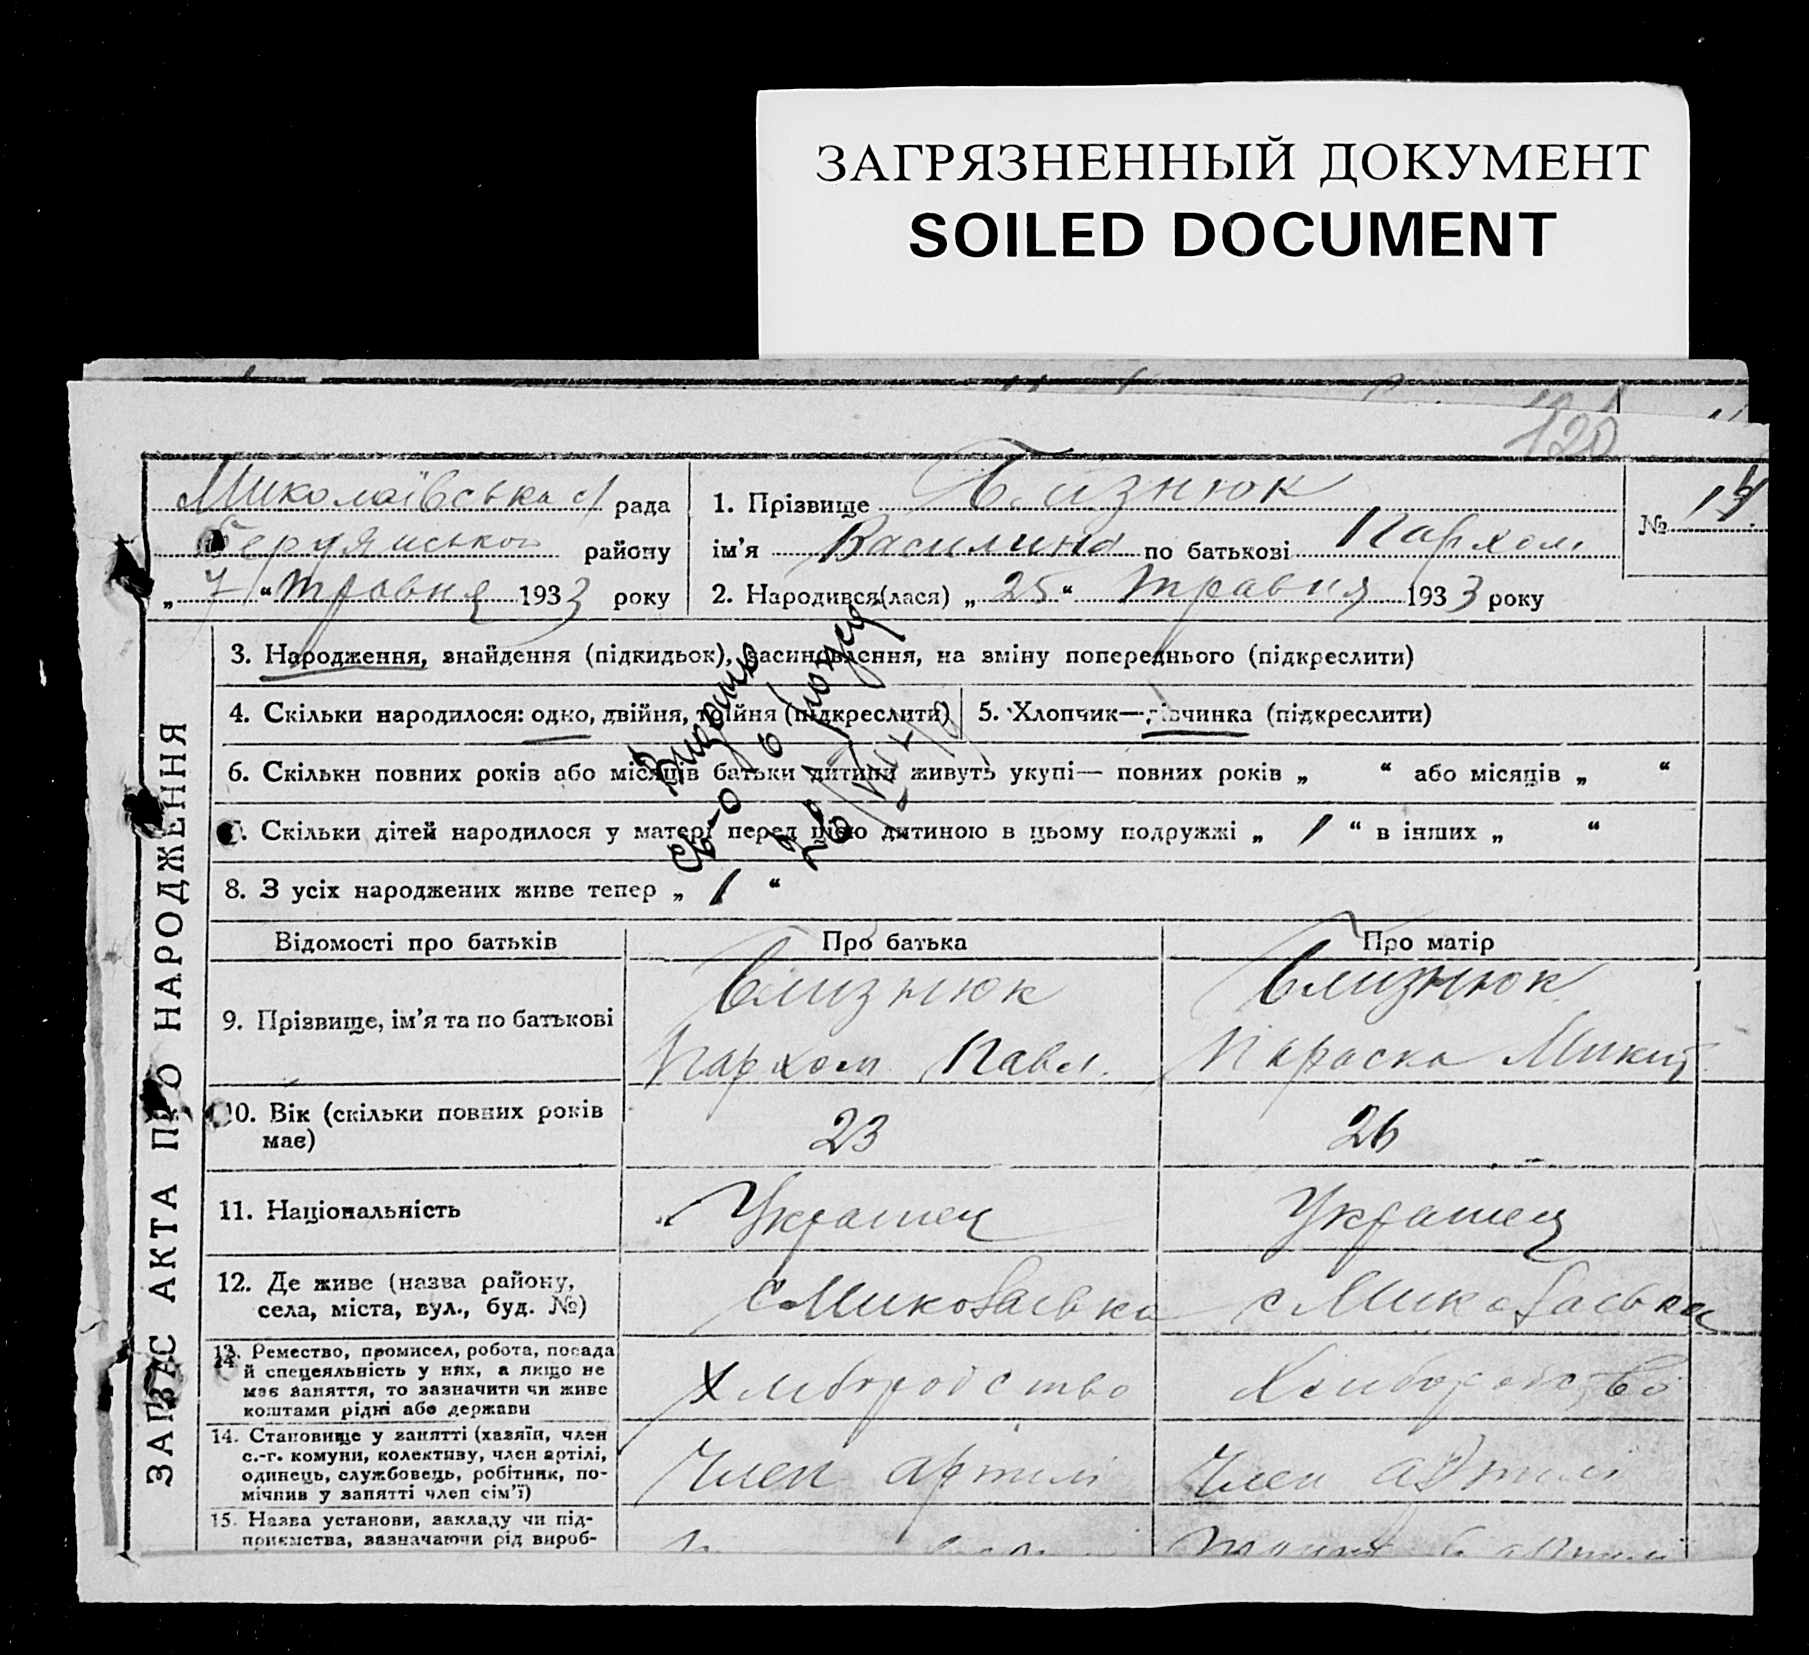 ЗАГРЯЗНЕННЫЙ ДОКУМЕНТ
SOILED DOCUMENT
120
Миколаївська с/ рада
району
„ 7 “ травня 1933 року
1. Прізвище Близнюк
ім'я Василина по батькові Пархом
2. Народився(лася) „ 25 “ травня 1933 року
№
ЗАПИС АКТА ПРО НАРОДЖЕННЯ
3. Народження, знайдення (підкидьок), засиновлення, на зміну попереднього (підкреслити)
4. Скільки народилося: одно, двійня, трійня (підкреслити)
5. Хлопчик—дівчинка (підкреслити)
6. Скільки повних років або місяців батьки дитини живуть укупі— повних років „ “ або місяців „ “
7. Скільки дітей народилося у матері перед цією дитиною в цьому подружжі „ 1 “ в інших „ “
8. З усіх народжених живе тепер „ 1 “
Відомості про батьків
Про батька
Про матір
9. Прізвище, ім'я та по батькові
Близнюк
Пархом Павл.
Близнюк
Параска Микит
10. Вік (скільки повних років
має)
23
26
11. Національність
Украинец
Украинец
12. Де живе (назва району,
села, міста, вул., буд. №)
с Миколаївка
с Миколаївка
13. Ремество, промисел, робота, посада
й спецеяльність у них, а якщо не
має заняття, то зазначити чи живе
коштами рідні або держави
Хліборобство
Хліборобство
14. Становище у занятті (хазяїн, член
с.-г. комуни, колективу, член артілі,
одинець, службовець, робітник, по-
мічнив у занятті член сім'ї)
Член артілі
Член артілі
15. Назва установи, закладу чи під-
приємства, зазначаючи рід вироб-